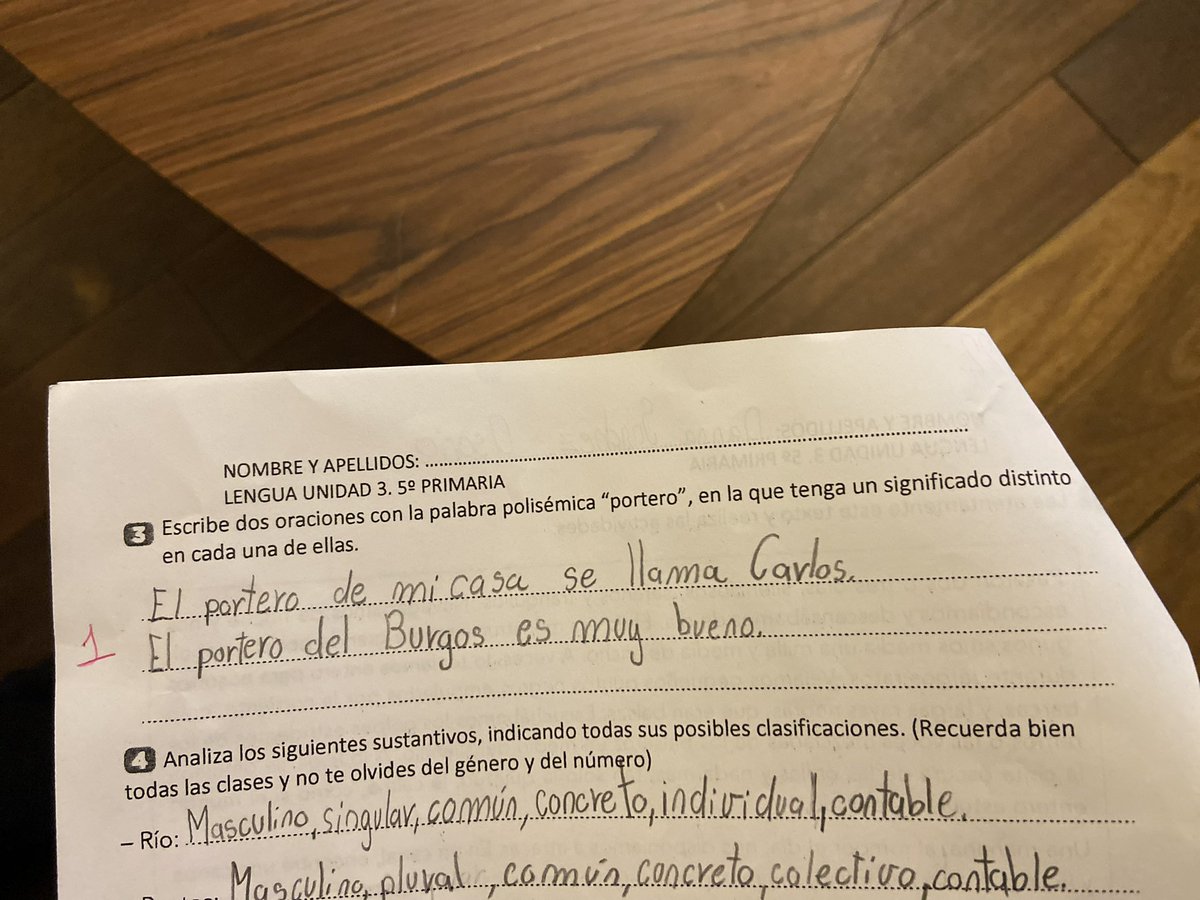 NOMBRE Y APELLIDOS:
LENGUA UNIDAD 3. 5º PRIMARIA
3 Escribe dos oraciones con la palabra polisémica “portero”, en la que tenga un significado distinto
en cada una de ellas.
El portero de mi casa se llama Carlos.
1 El portero del Burgos es muy bueno.
4 Analiza los siguientes sustantivos, indicando todas sus posibles clasificaciones. (Recuerda bien
todas las clases y no te olvides del género y del número)
– Río: Masculino, singular, común, concreto, individual, contable.
Masculino, plural, común, concreto, colectivo, contable.